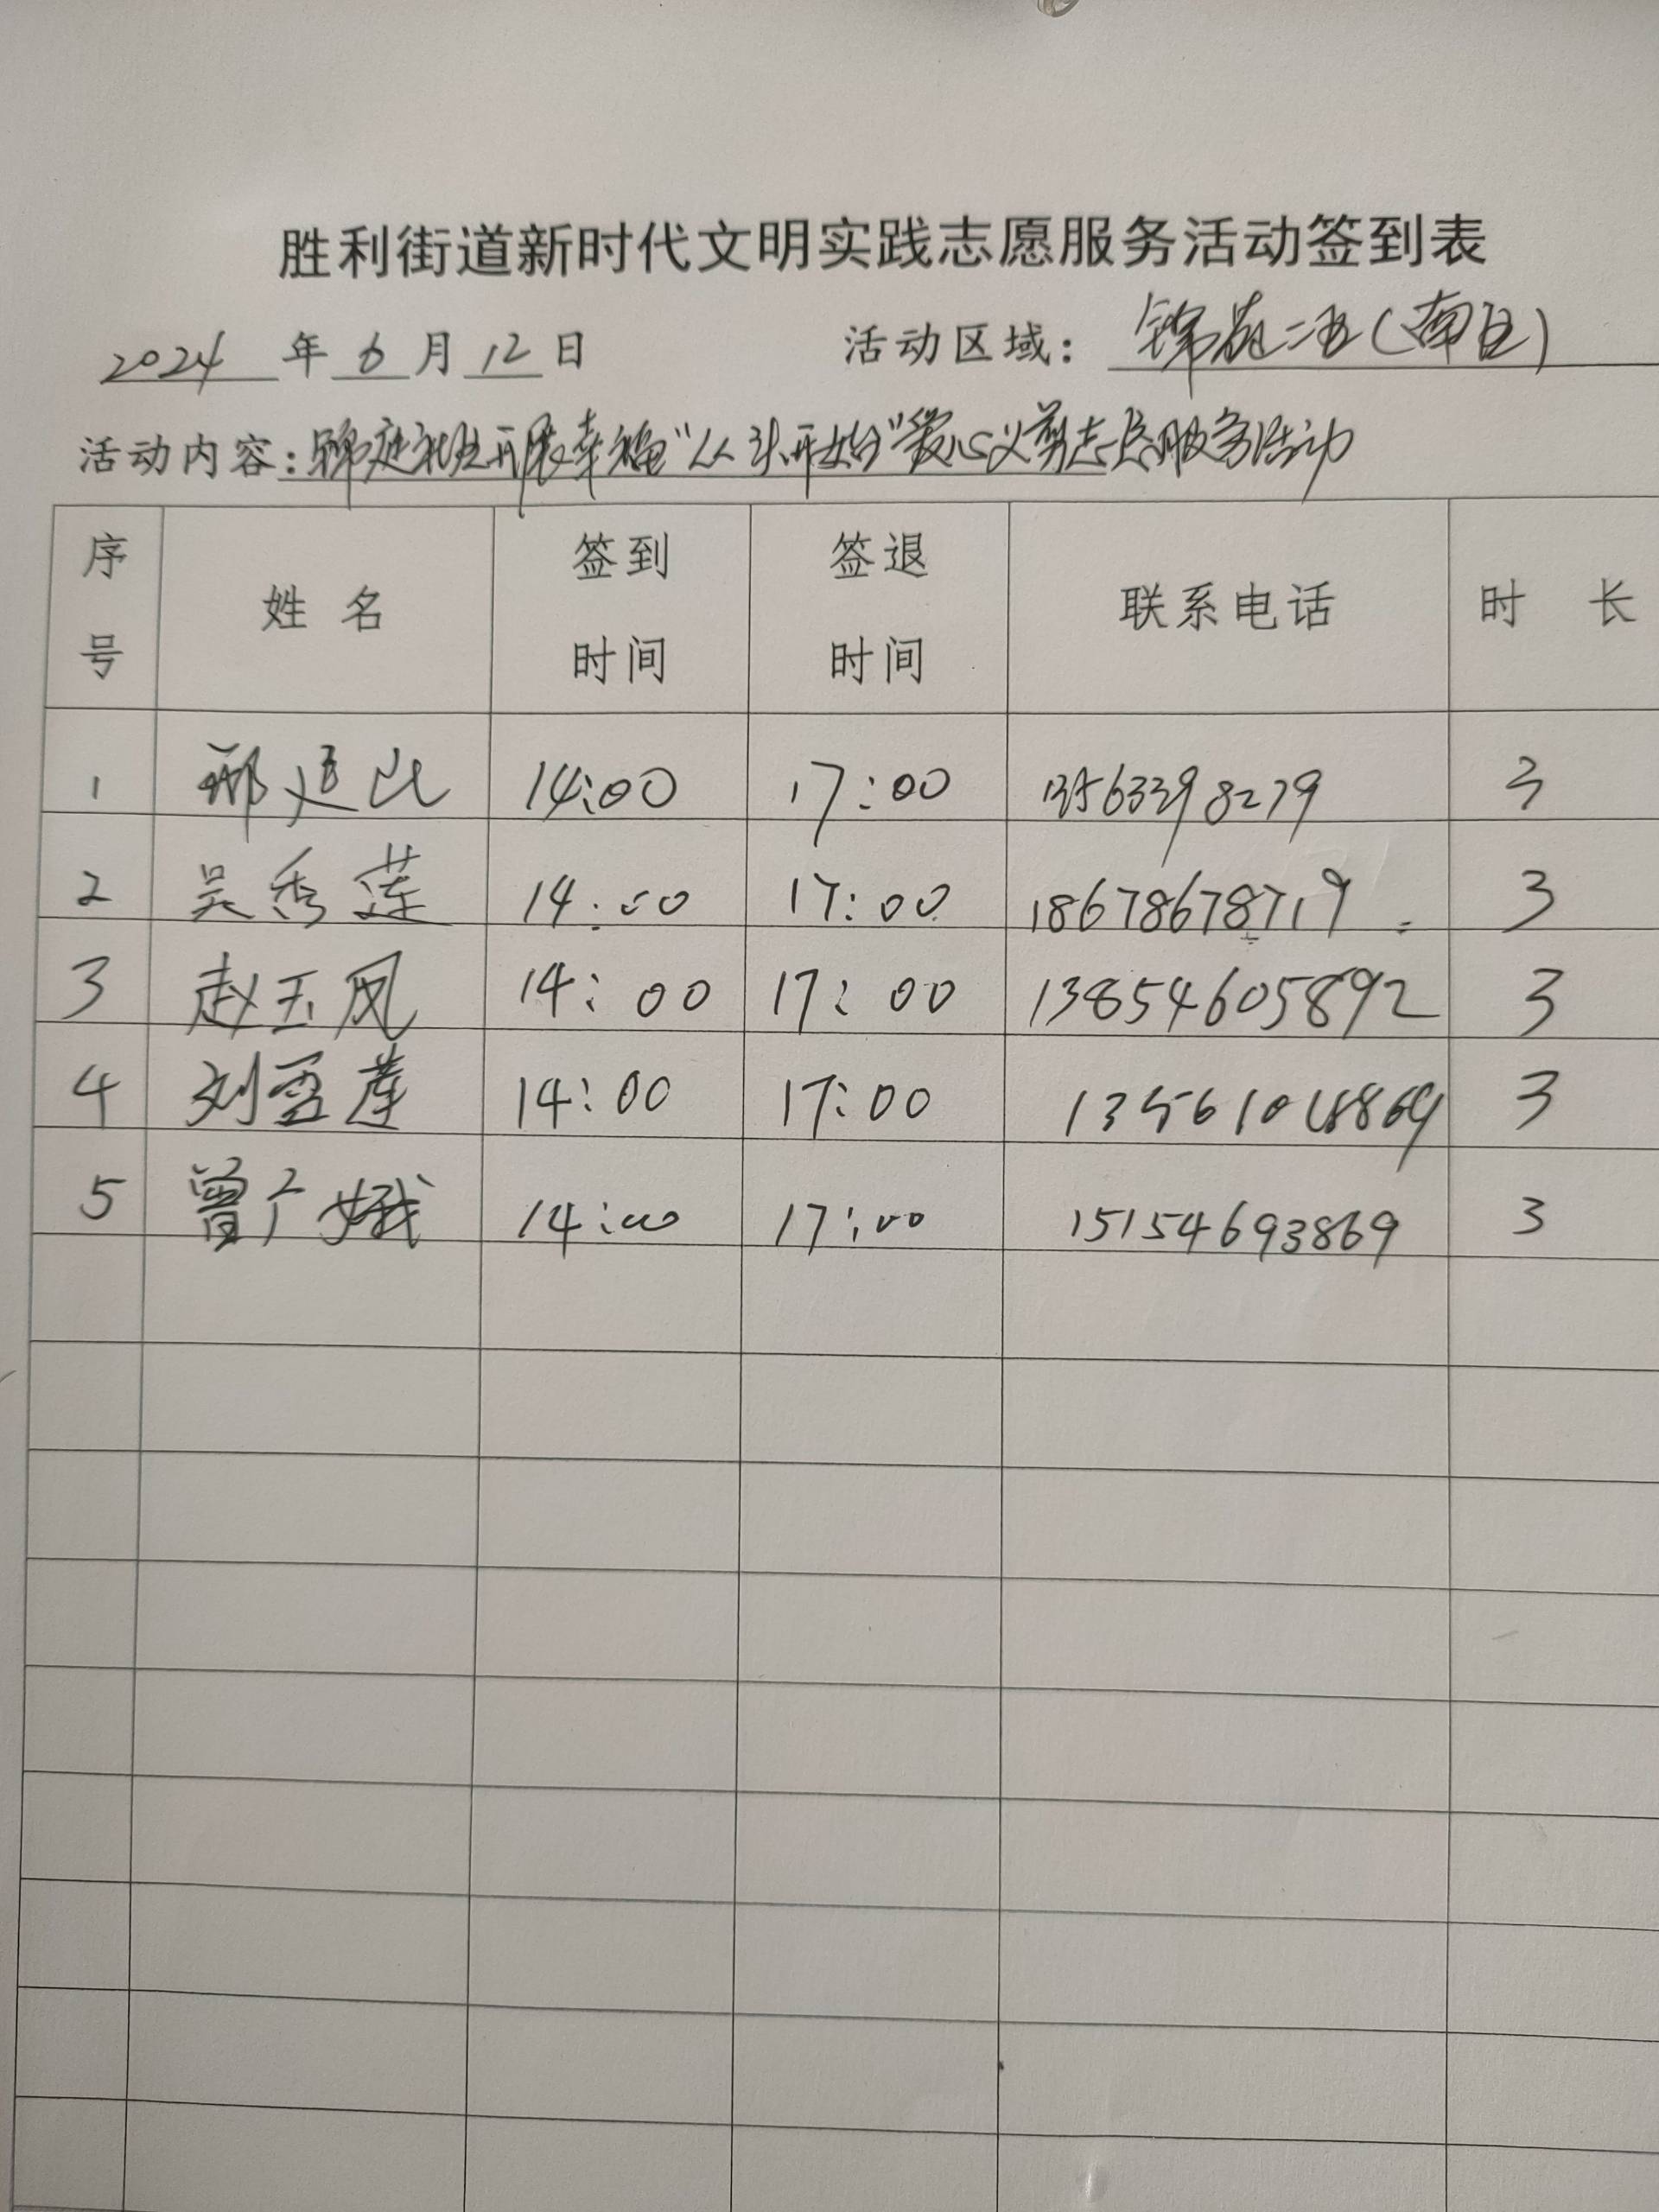 胜利街道新时代文明实践志愿服务活动签到表
2024 年 6 月 12 日 活动区域: 锦苑二区(南区)
活动内容: 锦庭社区开展幸福"从头开始"爱心义剪志愿服务活动
序号 姓名 签到时间 签退时间 联系电话 时长
1 邢建 14:00 17:00 3
2 吴秀莲 14:00 17:00 18678678719 3
3 赵玉凤 14:00 17:00 13854605892 3
4 刘雪莲 14:00 17:00 3
5 曾广娥 14:00 17:00 15154693869 3